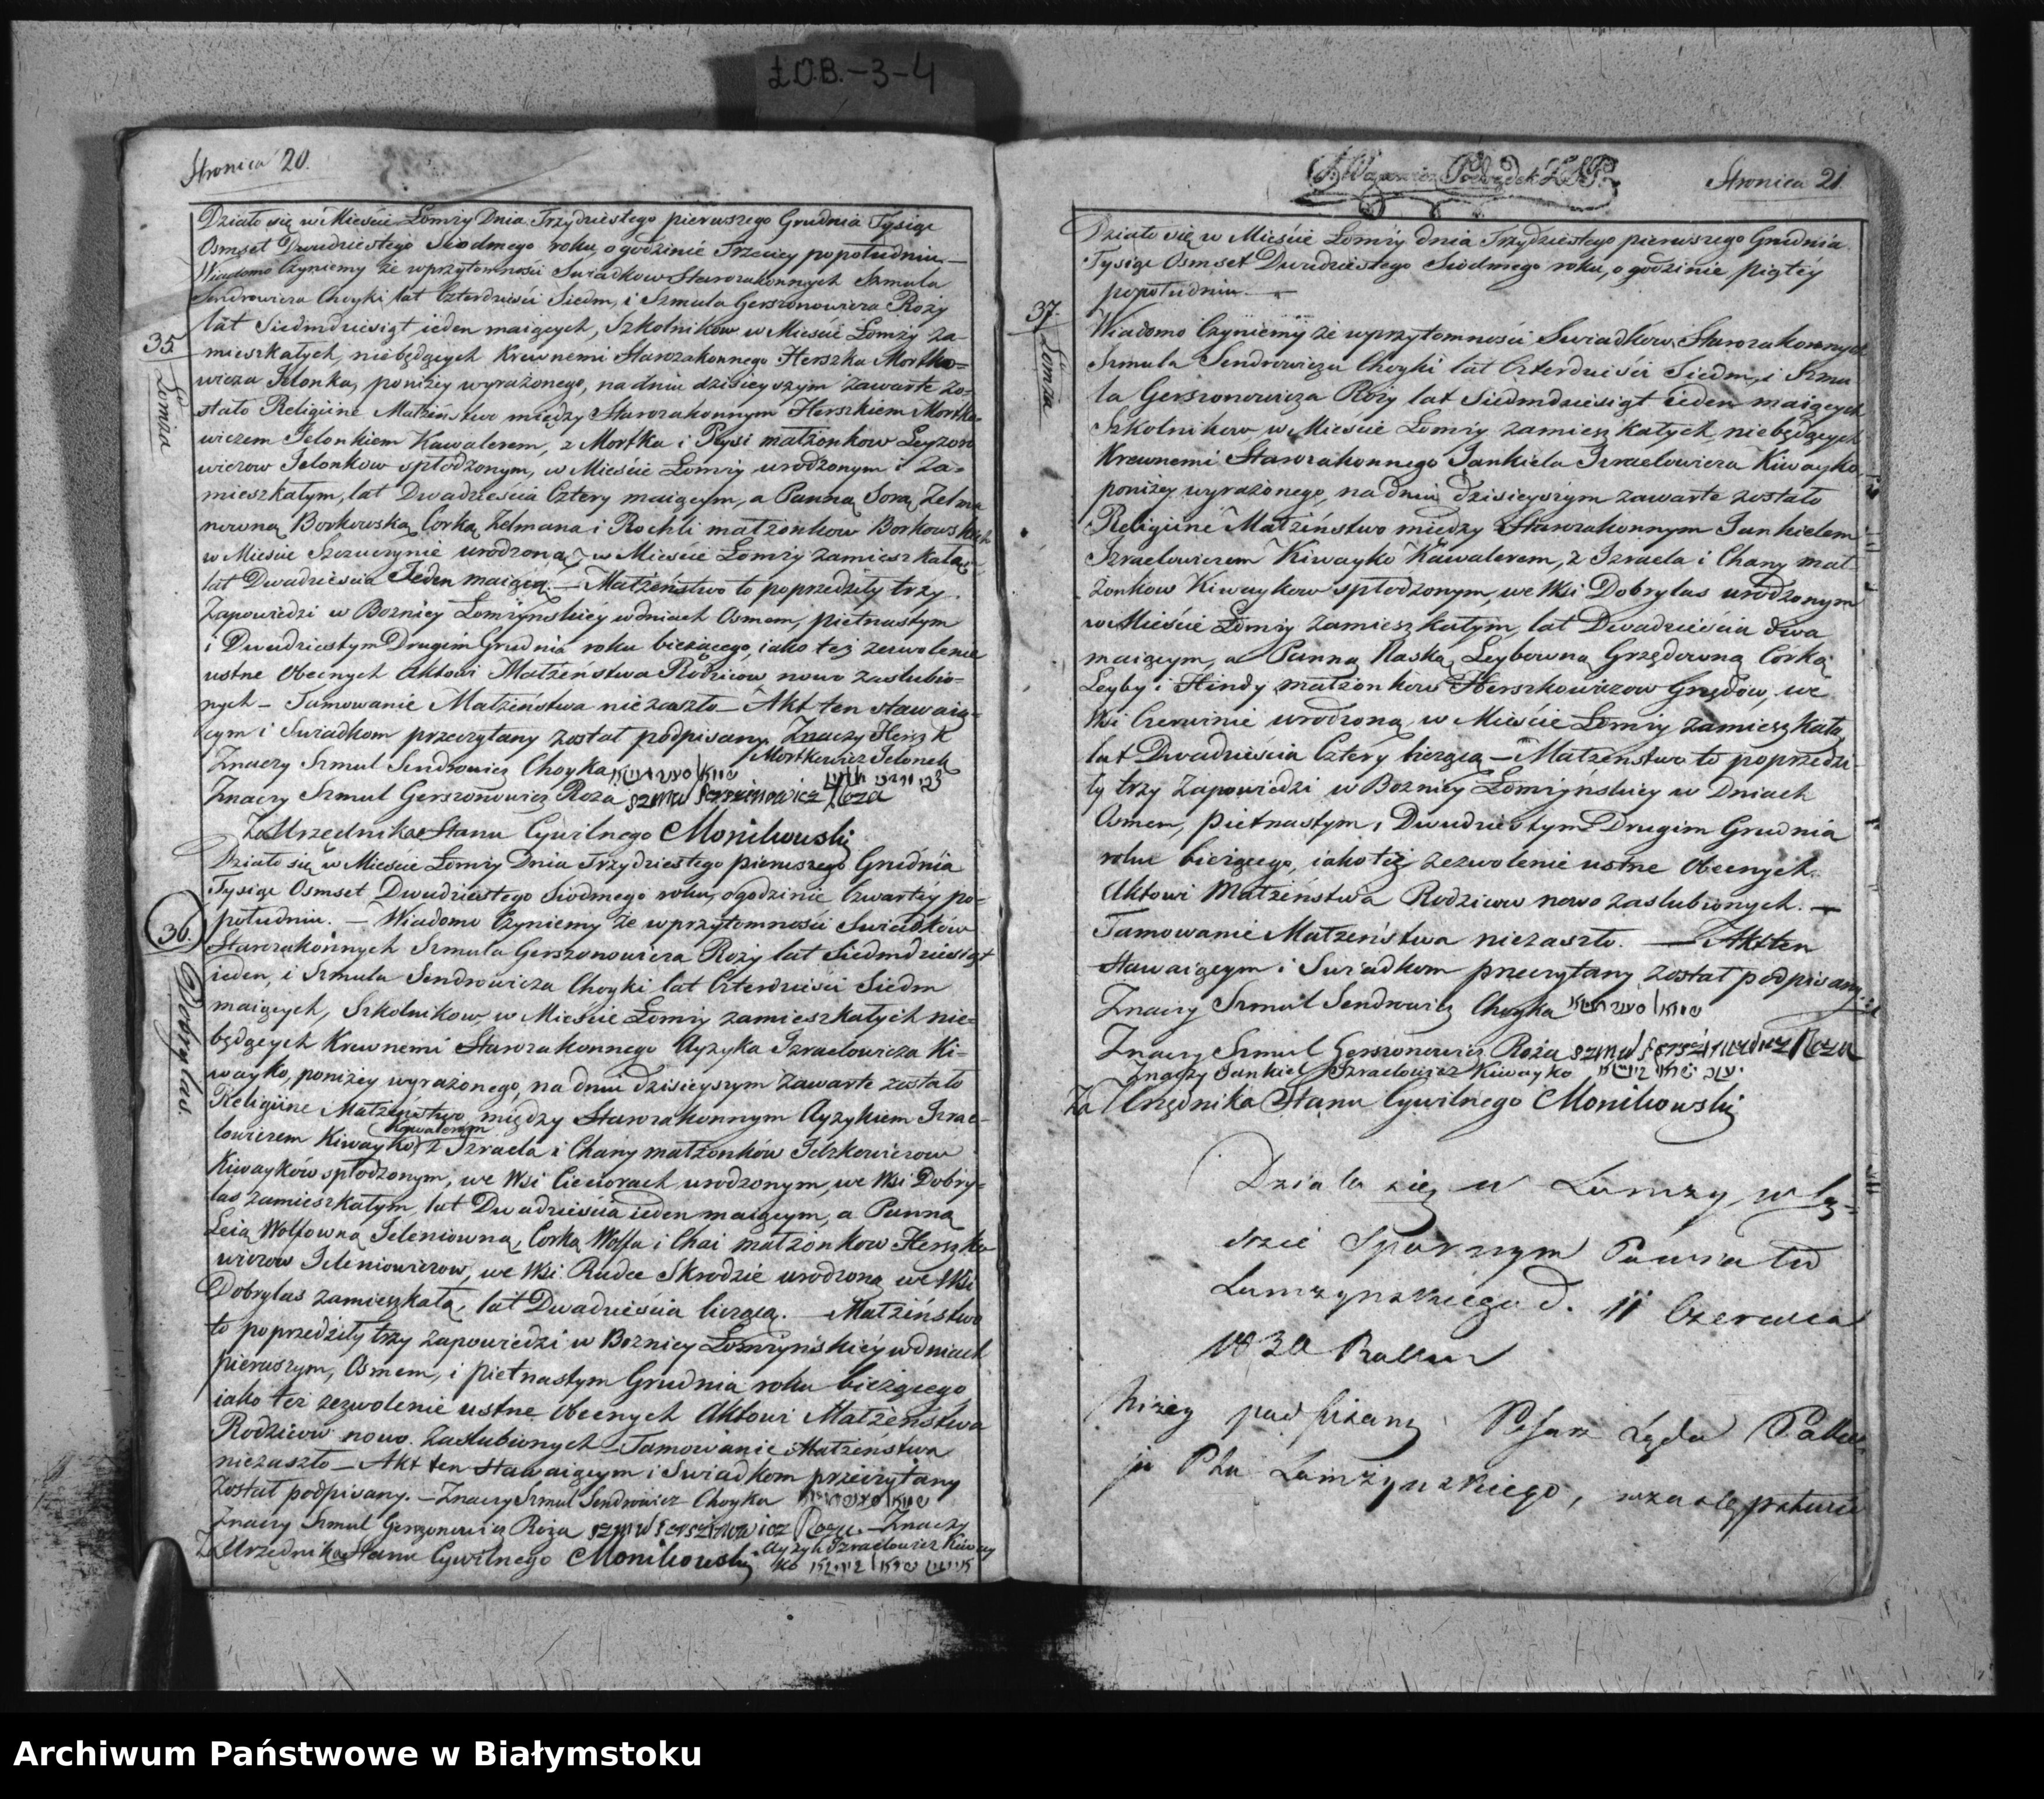 Ł.O.B.-3-4
Stronica 20.
Działo się w Mieście Łomży Dnia Trzydziestego pierwszego Grudnia Tysiąc
Osmset Dwudziestego Siodmego roku, o godzinie Trzeciey popołudniu. —
Wiadomo Czyniemy że wprzytomności Swiadkow Starozakonnych Szmula
Sendrowicza Choyki lat Czterdzieści Siedm, i Szmula Gerszonowicza Roży
lat Siedmdziesiąt ieden maiących, Szkolnikow w Mieście Łomży za-
mieszkałych, niebędących Krewnemi Starozakonnego Herszka Mortko-
wicza Jelonka, poniżey wyrażonego, na dniu dzisieyszym zawarte zo-
stało Religiine Małżeństwo między Starozakonnym Herszkiem Mortko-
wiczem Jelonkiem Kawalerem, z Mortka i Peysi małżonkow Leyzoro
wiczow Jelonkow spłodzonym, w Mieście Łomży urodzonym i za-
mieszkałym, lat Dwadzieścia Cztery maiącym, a Panną Sorą Zelma
nowną Borkowską Corką Zelmana i Rochli małżonkow Borkowskich
w Mieście Szczuczynie urodzoną, w Mieście Łomży zamieszkałą
lat Dwadzieścia Jeden maiącą. — Małżeństwo to poprzedziły trzy
Zapowiedzi w Boznicy Łomżyńskiéy w dniach Osmem, pietnastym
i Dwudziestym Drugim Grudnia roku bieżącego, iako też zezwolenie
ustne Obecnych Aktowi Małżeństwa Rodzicow nowo zaslubio-
nych — Tamowanie Małżeństwa niezaszło — Akt ten stawaią-
cym i Swiadkom przeczytany został podpisany. Znaczy Herszk
Mortkowicz Jelonek
Znaczy Szmul Sendrowicz Choyka
Znaczy Szmul Gerszonowicz Roża szmul Gerszinowicz Roza
Za Urzędnika Stanu Cywilnego Monikowski
35
Łomża
Działo się w Mieście Łomży Dnia Trzydziestego pierwszego Grudnia
Tysiąc Osmset Dwudziestego Siodmego roku, o godzinie Czwartéy po-
południu. — Wiadomo Czyniemy że wprzytomności Swiadków
Starozakonnych Szmula Gerszonowicza Roży lat Siedmdziesiąt
ieden, i Szmula Sendrowicza Choyki lat Czterdzieści Siedm
maiących, Szkolnikow, w Mieście Łomży zamieszkałych nie-
będących Krewnemi Starozakonnego Ayzyka Izraelowicza Ki-
wayko, poniżey wyrażonego, na dniu dzisieyszym zawarte zostało
Religiine Małżeństwo między Starozakonnym Ayzykiem Izrae-
lowiczem Kiwayko Kawalerem, z Izraela i Chany małżonków Jckowiczow
Kiwayków spłodzonym, we Wsi Cieciorach urodzonym, we Wsi Dobry-
las zamieszkałym, lat Dwadzieścia ieden maiącym, a Panną
Leią Wolfowną Jeleniowną, Corką Wolfa i Chai małżonkow Herszko
wiczow Jeleniowiczow, we Wsi Rudce Skrodzie urodzoną we Wsi
Dobrylas zamieszkałą, lat Dwadzieścia liczącą. — Małżeństwo
to poprzedziły trzy zapowiedzi w Boznicy Łomżyńskiéy w dniach
pierwszym, Osmem, i pietnastym Grudnia roku bieżącego
iako też zezwolenie ustne Obecnych Aktowi Małżeństwa
Rodzicow nowo zaslubionych — Tamowanie Małżeństwa
niezaszło — Akt ten stawaiącym i Swiadkom przeczytany
został podpisany. — Znaczy Szmul Sendrowicz Choyka
Znaczy Szmul Gerszonowicz Roża szmul Gerszinowicz Roza — Znaczy
Ayzyk Izraelowicz Kiway
ko
Za Urzędnika Stanu Cywilnego Monikowski
36.
Dobrylas.
Stronica 21.
Działo się w Mieście Łomży dnia Trzydziestego pierwszego Grudnia
Tysiąc Osmset Dwudziestego Siodmego roku, o godzinie piątéy
popołudniu. —
Wiadomo Czyniemy że wprzytomności Swiadków Starozakonnych
Szmula Sendrowicza Choyki lat Czterdzieści Siedm, i Szmu
la Gerszonowicza Roży lat Siedmdziesiąt ieden maiących
Szkolnikow, w Mieście Łomży zamieszkałych, niebędących
Krewnemi Starozakonnego Jankiela Izraelowicza Kiwayko
poniżey wyrażonego, na dniu dzisieyszym zawarte zostało
Religiine Małżeństwo między Starozakonnym Jankielem
Izraelowiczem Kiwayko Kawalerem, z Izraela i Chany mał-
żonkow Kiwaykow spłodzonym, we Wsi Dobrylas urodzonym
w Mieście Łomży zamieszkałym, lat Dwadzieścia dwa
maiącym, a Panną Raską Leybowną Grzędowną Córką
Leyby i Hindy małżonków Herszkowiczow Grzędow, we
Wsi Czerwinie urodzoną, w Mieście Łomży zamieszkałą,
lat Dwadzieścia Cztery liczącą — Małżeństwo to poprzedzi-
ły trzy Zapowiedzi w Boznicy Łomżyńskiey w Dniach
Osmem, pietnastym, Dwudziestym Drugim Grudnia
roku bieżącego, iako też zezwolenie ustne Obecnych
Aktowi Małżeństwa Rodzicow nowo zaslubionych. —
Tamowanie Małżeństwa niezaszło. — Akt ten
stawaiącym i Swiadkom przeczytany został podpisany.
Znaczy Szmul Sendrowicz Choyka
Znaczy Szmul Gerszonowicz Roża szmul Gerszinowicz Roza
Znaczy Jankiel Izraelowicz Kiwayko
Za Urzędnika Stanu Cywilnego Monikowski
37.
Łomża
Działo się w Łomży w Są-
dzie Spornym Powiatu
Łomzynskiego d. 11 Czerwca
1830 Roku
Niżey podpisany Pisarz Sądu Poko-
ju Ptu Łomżynskiego, w zastępstwie
Archiwum Państwowe w Białymstoku